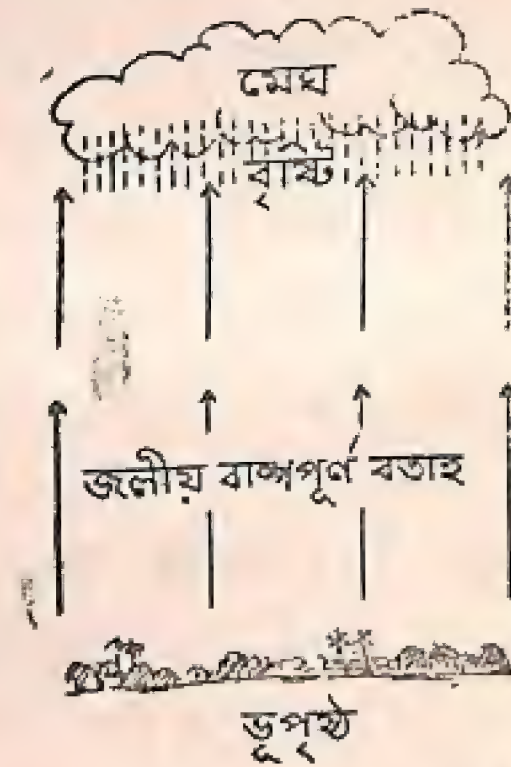 মেঘ
বৃষ্টি
জলীয় বাষ্পপূর্ণ বতাহ
ভূপৃষ্ঠ